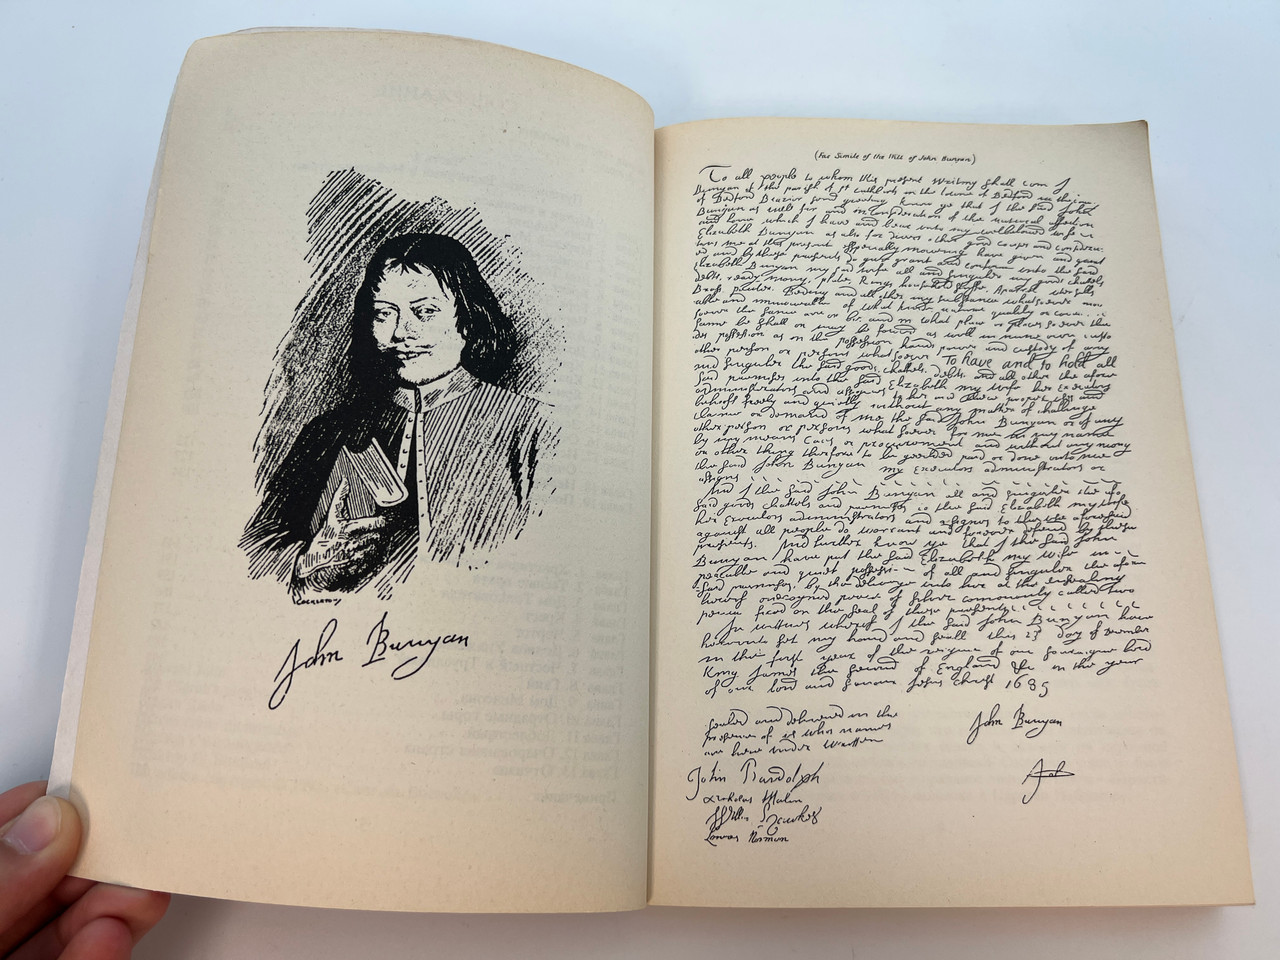 John Bunyan
(Fac Simile of the Will of John Bunyan)
To all people to whom this present Writing shall com J
Bunyan of the parish of st Cuthberts in the towne of Bedford in the
of Bedford Brazier send greeting know ye that I the said John
Bunyan as well for and in Consideration of the natural affection
and love which I have and bear unto my welbeloved wife
Elizabeth Bunyan as also for divers other good causes and consider
me at this present Especially moveing have given and
and by these presents do give grant and confirm unto the said
Elizabeth Bunyan my said wife all and singuler my goods chattels
debts ready mony plate Rings houshold stuffe Aparrel utensills
Brass pewter Beding and all other my substance whatsoever
able and immoveable of what kind nature quality or
soever the same are or be and in what place or places soever the
same be shall or may be found as well in mine own
possession as in the possession hands power and custody of any
other person or persons whatsoever To have and to hold all
and singuler the said goods chattels debts and all other the afore
said premises unto the said Elizabeth my wife her Executors
administrators and assignes to her and there proper uses and
freely and quietly without any matter of challenge
claime or demand of me the said John Bunyan or of any
other person or persons what soever for me in my name
by my means Caus or procurement and without any mony
or other thing therfore to be paid or done unto me
the said John Bunyan my Executors administrators or
assigns
And I the said John Bunyan all and singuler the
said goods chattels and premises to the said Elizabeth my wife
her Executors administrators and assignes to the use aforesaid
against all people do warrant and forever defend by these
presents. And further know ye that I the said John
Bunyan have put the said Elizabeth my wife in
peacable and quiet of all and singuler the afore
said premises, by the delivrye unto her at the ensealing
hereof one coyned peece of silver commonly called two
pence fixed on the seal of these presents
In witnes wherof I the said John Bunyan have
hereunto set my hand and seall this 23 day of December
in the first year of the reigne of our soveraigne lord
King James the second of England &c in the year
of our lord and saviour Jesus christ 1685
Sealed and delivered in the
presence of us whos names
are here under written
John Bunyan
John Bardolph
Nicholas Malin
Willm Hawkes
Lewes Norman